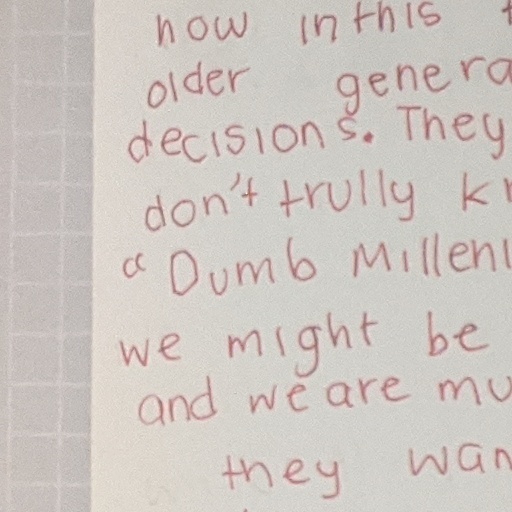 now in this
older genera
decisions. They
don't trully k
a Dumb Milleni
we might be
and we are mu
they wan